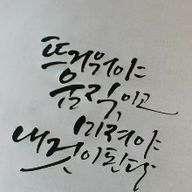 뜨거워야
움직이고
미쳐야
내것이된다